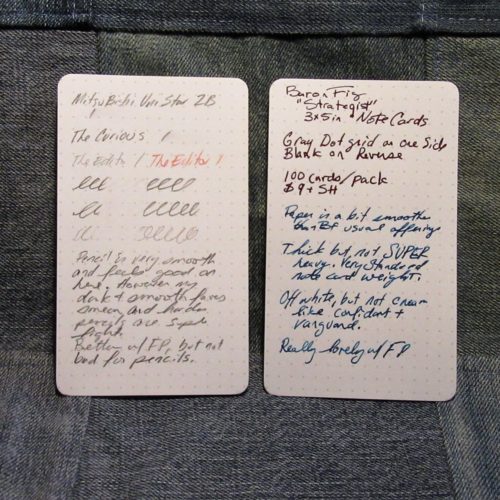 Mitsubishi Uni Star 2B
The Curious
The Editor / The Editor
Pencil is very smooth
and feels good on
here. However my
dark + smooth faves
smear, and harder
pencils are super
light.
Better w/ FP, but not
bad for pencils.
Baron Fig
"Strategist"
3x5in Note Cards
Gray Dot grid on one Side
Blank on Reverse
100 cards/pack
$9 + SH
Paper is a bit smoother
than BF usual offering
Thick but not SUPER
heavy. Very Standard
note card weight.
Off white, but not cream
like confidant +
vanguard.
Really lovely w/ FP